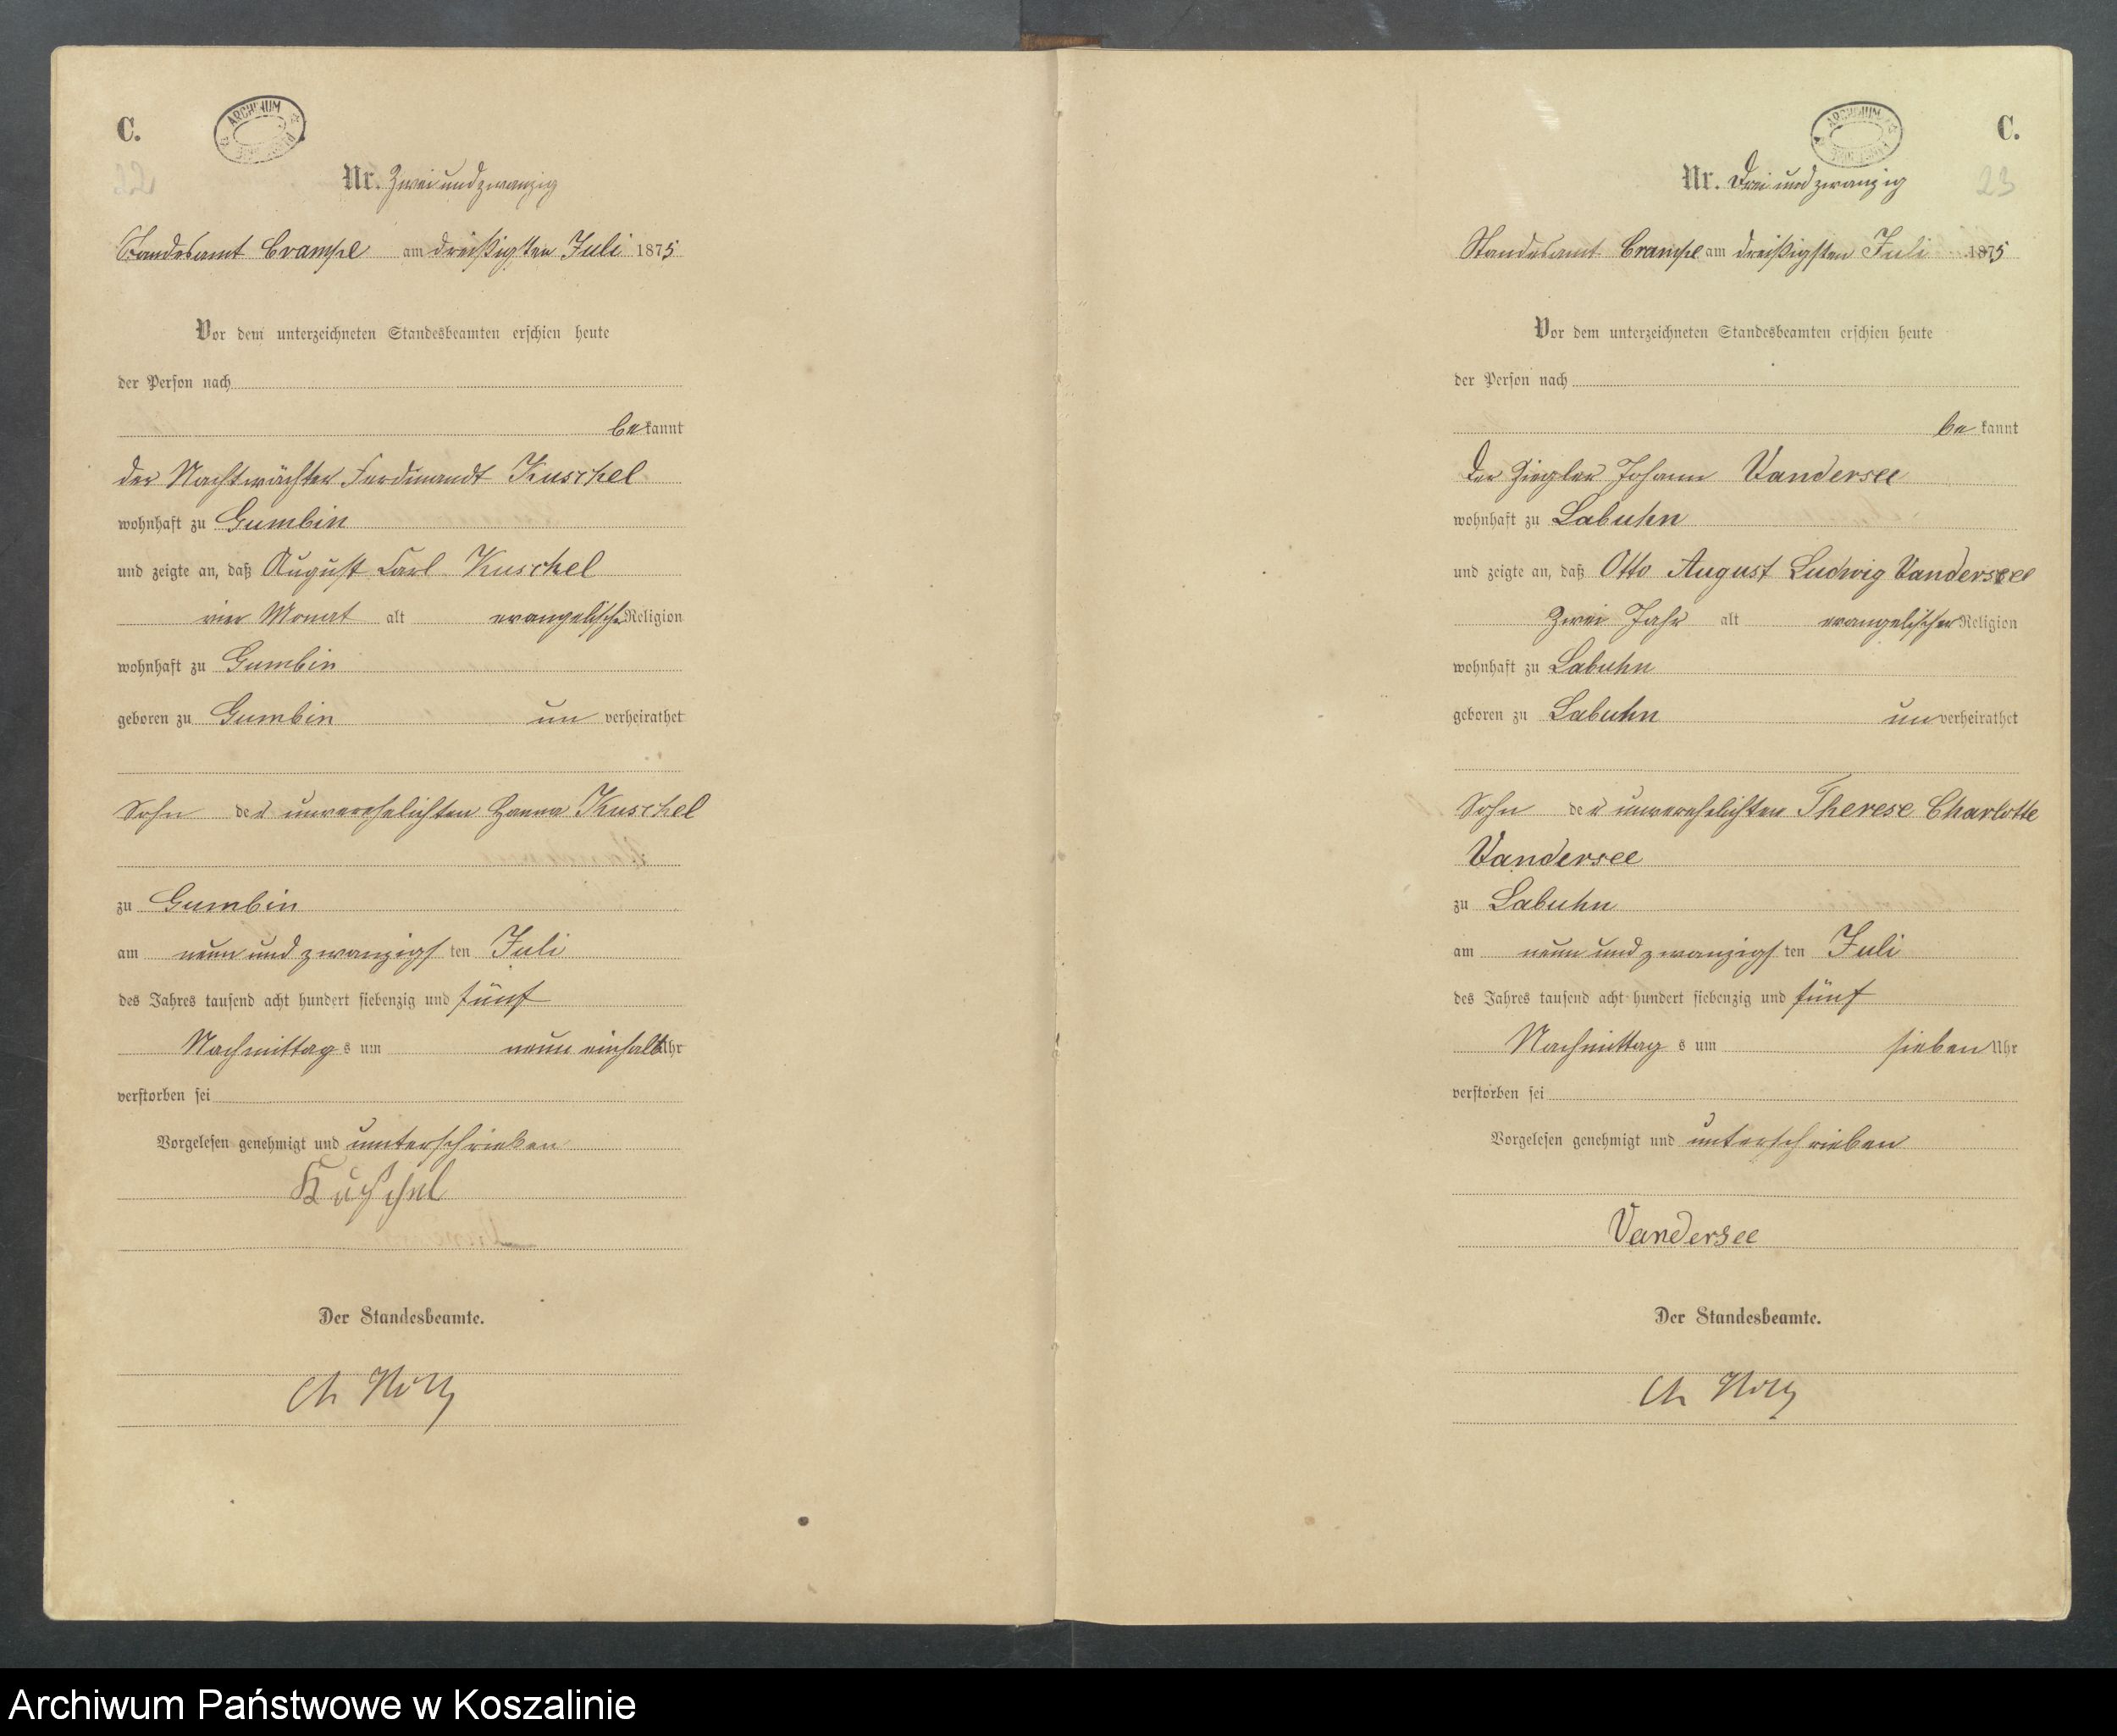 C.
ARCHIWUM
Nr. Zweiundzwanzig
22
Standesamt Crampe am dreißigsten Juli 1875
Vor dem unterzeichneten Standesbeamten erschien heute
der Person nach
bekannt
der Nachtwächter Ferdinandt Kuschel
wohnhaft zu Gumbin
und zeigte an, daß August Carl Kuschel
vier Monat alt evangelischer Religion
wohnhaft zu Gumbin
geboren zu Gumbin un verheirathet
Sohn der unverehelichten Hanna Kuschel
zu Gumbin
am neun und zwanzigsten Juli
des Jahres tausend acht hundert siebenzig und fünf
Nachmittags um neun einhalb Uhr
verstorben sei
Vorgelesen genehmigt und unterschrieben
Kuschel
Der Standesbeamte.
C.
ARCHIWUM
Nr. Drei und zwanzig
23
Standesamt Crampe am dreißigsten Juli 1875
Vor dem unterzeichneten Standesbeamten erschien heute
der Person nach
be kannt
der Ziegler Johann Vandersee
wohnhaft zu Labuhn
und zeigte an, daß Otto August Ludwig Vandersee
Zwei Jahr alt evangelischer Religion
wohnhaft zu Labuhn
geboren zu Labuhn unverheirathet
Sohn der unverehelichten Therese Charlotte
Vandersee
zu Labuhn
am neun und zwanzigsten Juli
des Jahres tausend acht hundert siebenzig und fünf
Nachmittags um sieben Uhr
verstorben sei
Vorgelesen genehmigt und unterschrieben
Vandersee
Der Standesbeamte.
Archiwum Państwowe w Koszalinie